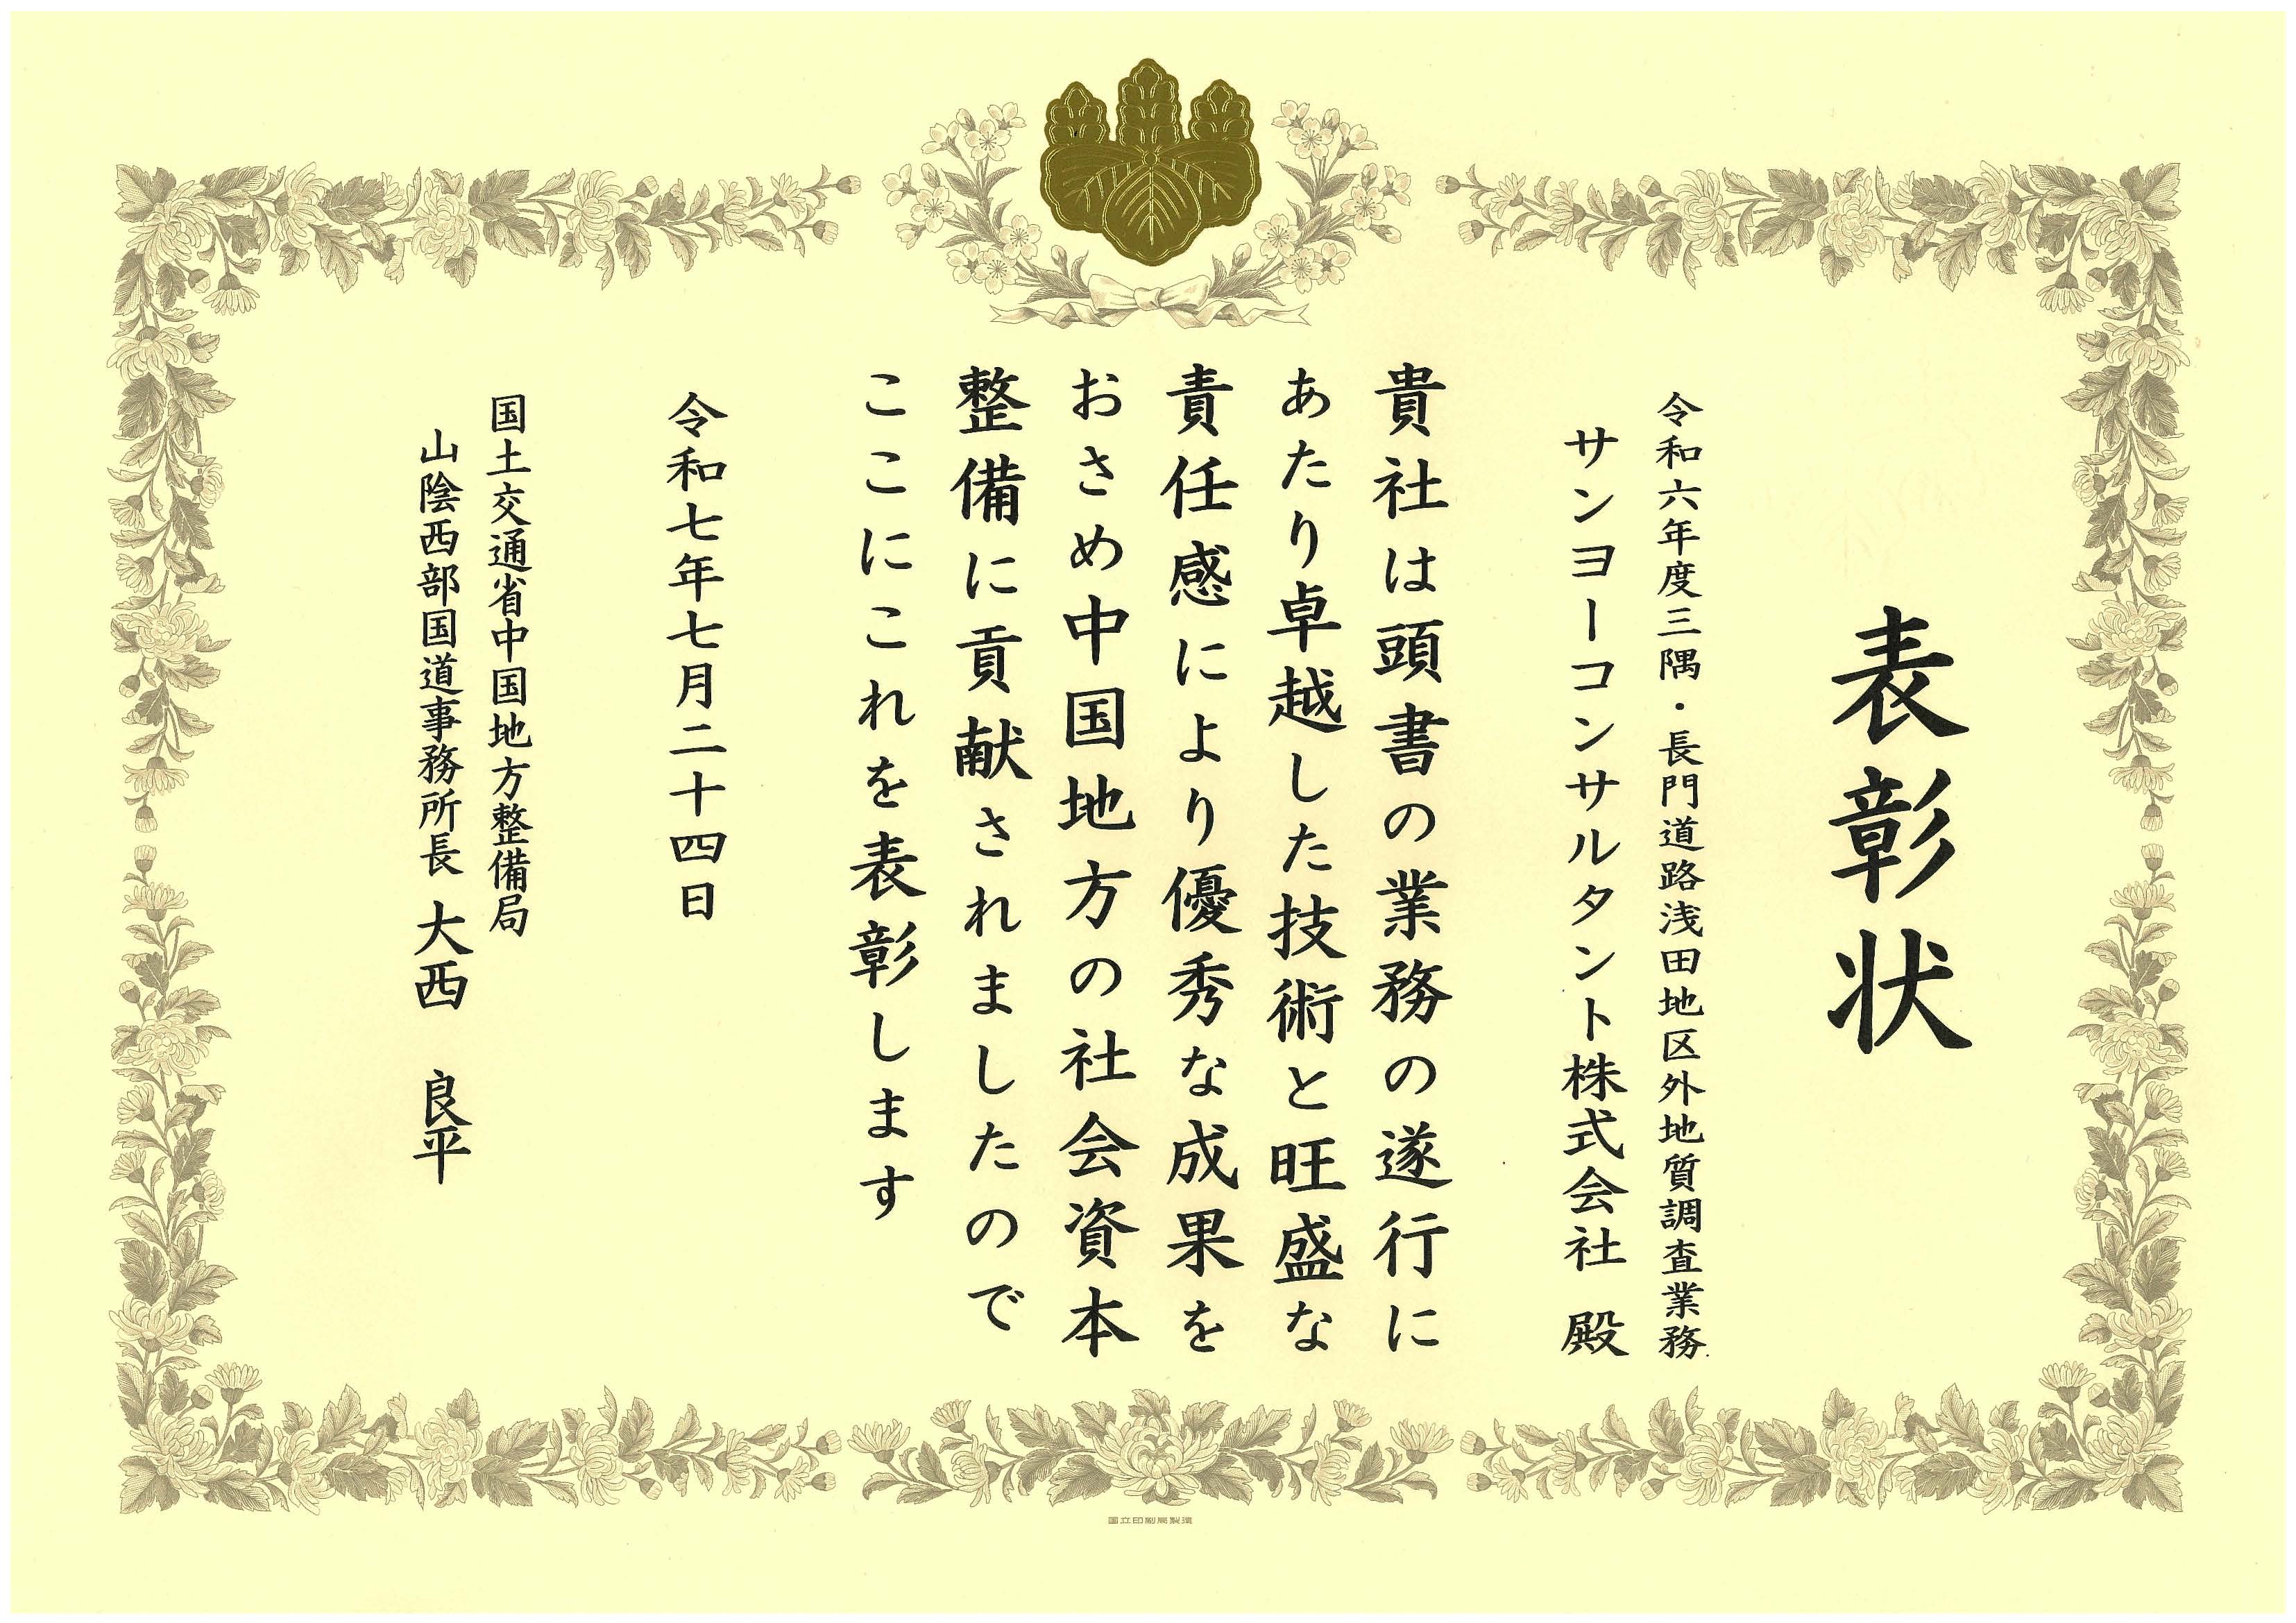 表彰状
令和六年度三隅・長門道路浅田地区外地質調査業務
サンヨーコンサルタント株式会社 殿
貴社は頭書の業務の遂行に
あたり卓越した技術と旺盛な
責任感により優秀な成果を
おさめ中国地方の社会資本
整備に貢献されましたので
ここにこれを表彰します
令和七年七月二十四日
国土交通省中国地方整備局
山陰西部国道事務所長 大西 良平
国立印刷局製造